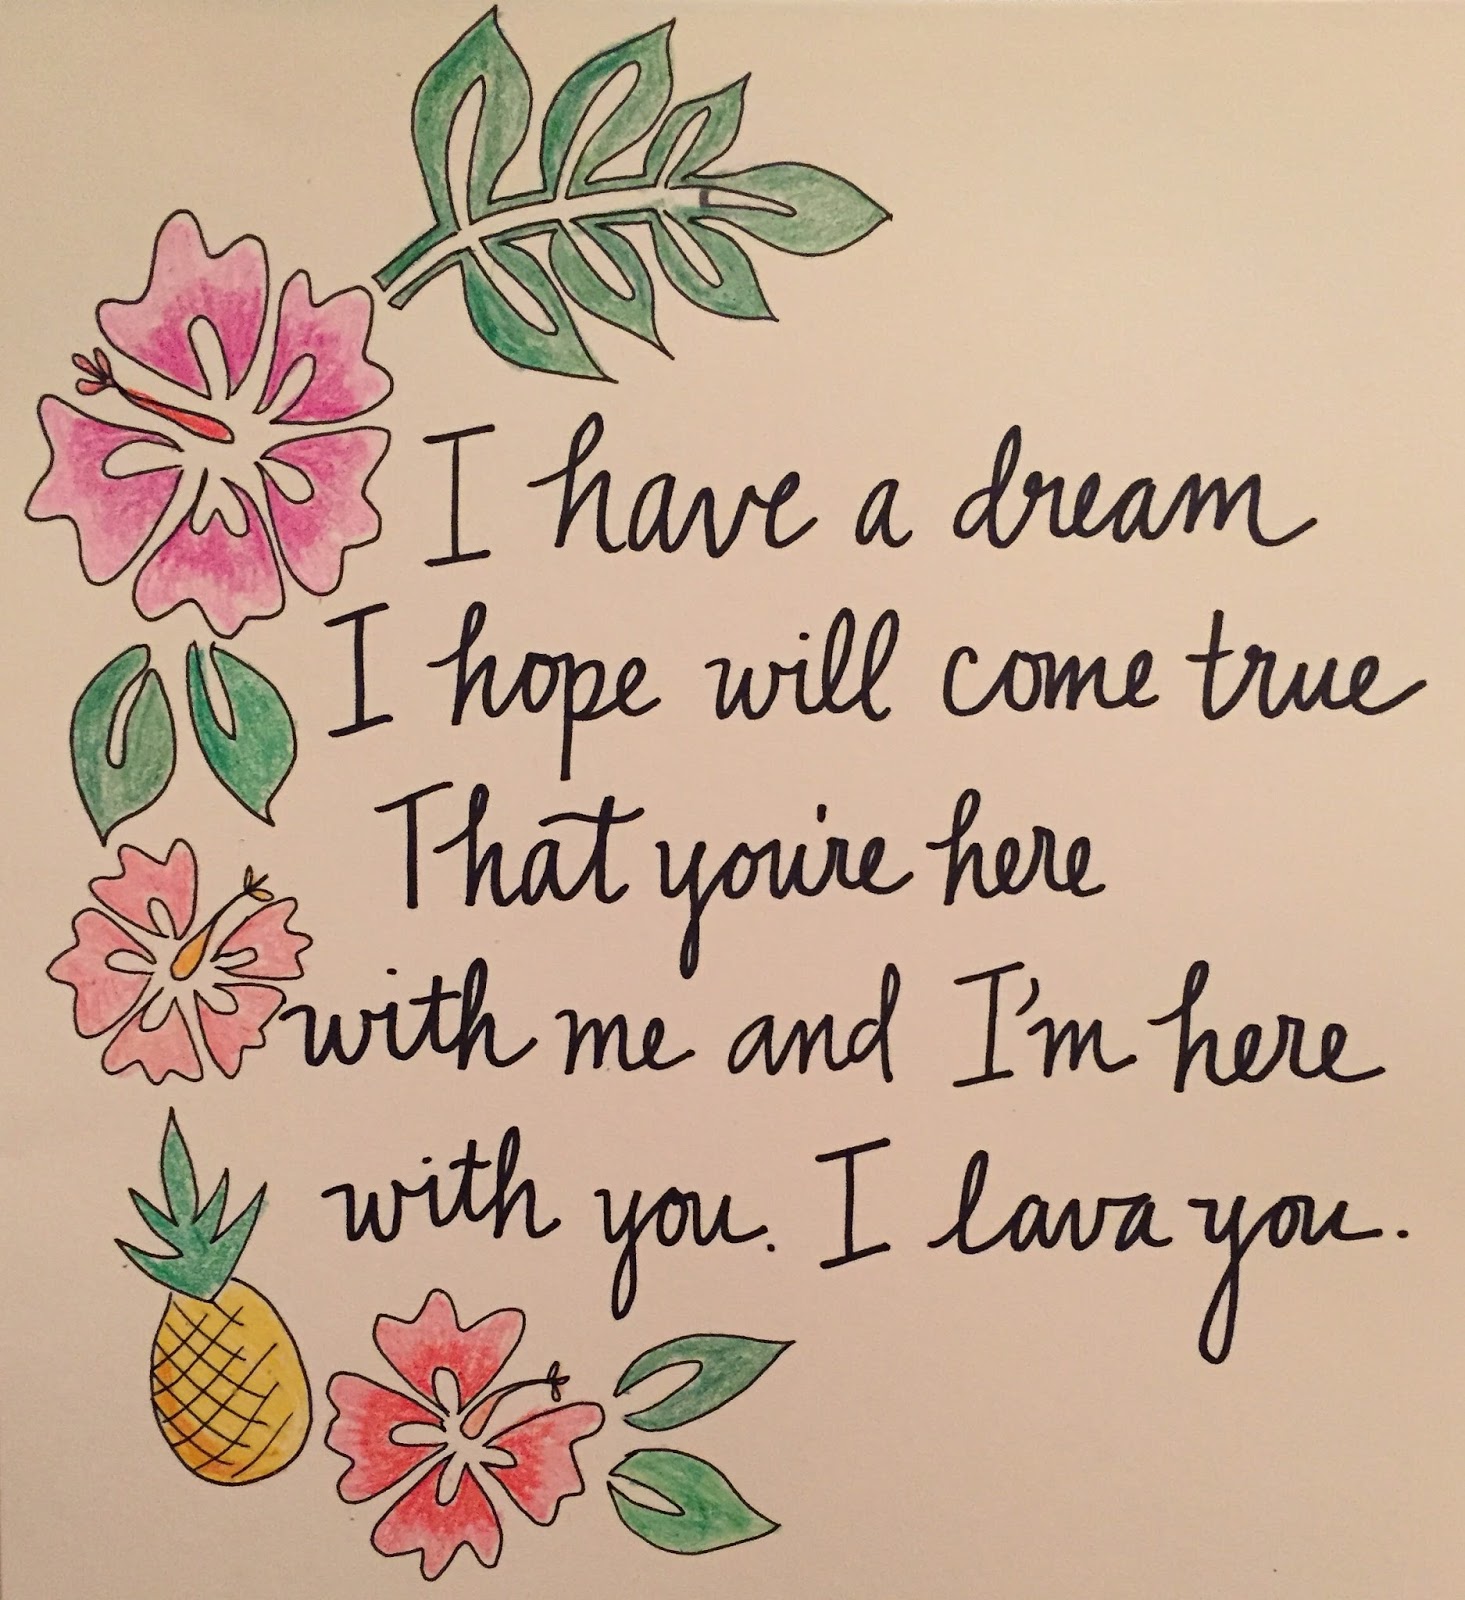 I have a dream
I hope will come true
That you're here
with me and I'm here
with you. I lava you.